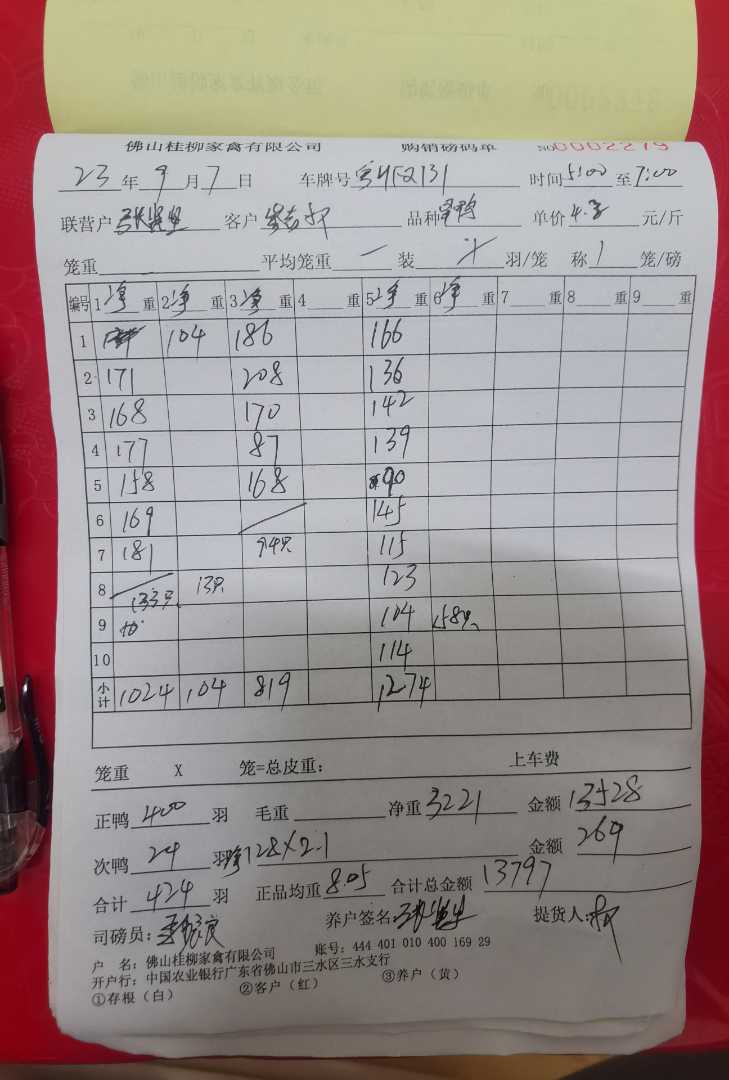 佛山桂柳家禽有限公司 购销磅码单 NO0002279
23年9月7日 车牌号 时间5:00至7:00
联营户 客户 品种 单价4.2元/斤
笼重 平均笼重一装 羽/笼 称1笼/磅
编号 1净重 2净重 3净重 4重 5净重 6净重 7重 8重 9重
1 104 186 166
2 171 208 136
3 168 170 142
4 177 87 139
5 158 168 90
6 169 145
7 181 94只 115
8 133只 13只 123
9 104 158只
10 114
小计 1024 104 819 1274
笼重 X 笼=总皮重: 上车费
正鸭400羽 毛重 净重3221 金额13528
次鸭24羽 128×2.1 金额269
合计424羽 正品均重8.05 合计总金额13797
司磅员: 养户签名: 提货人:
户 名:佛山桂柳家禽有限公司 账号:444 401 010 400 169 29
开户行:中国农业银行广东省佛山市三水区三水支行
①存根(白) ②客户(红) ③养户(黄)